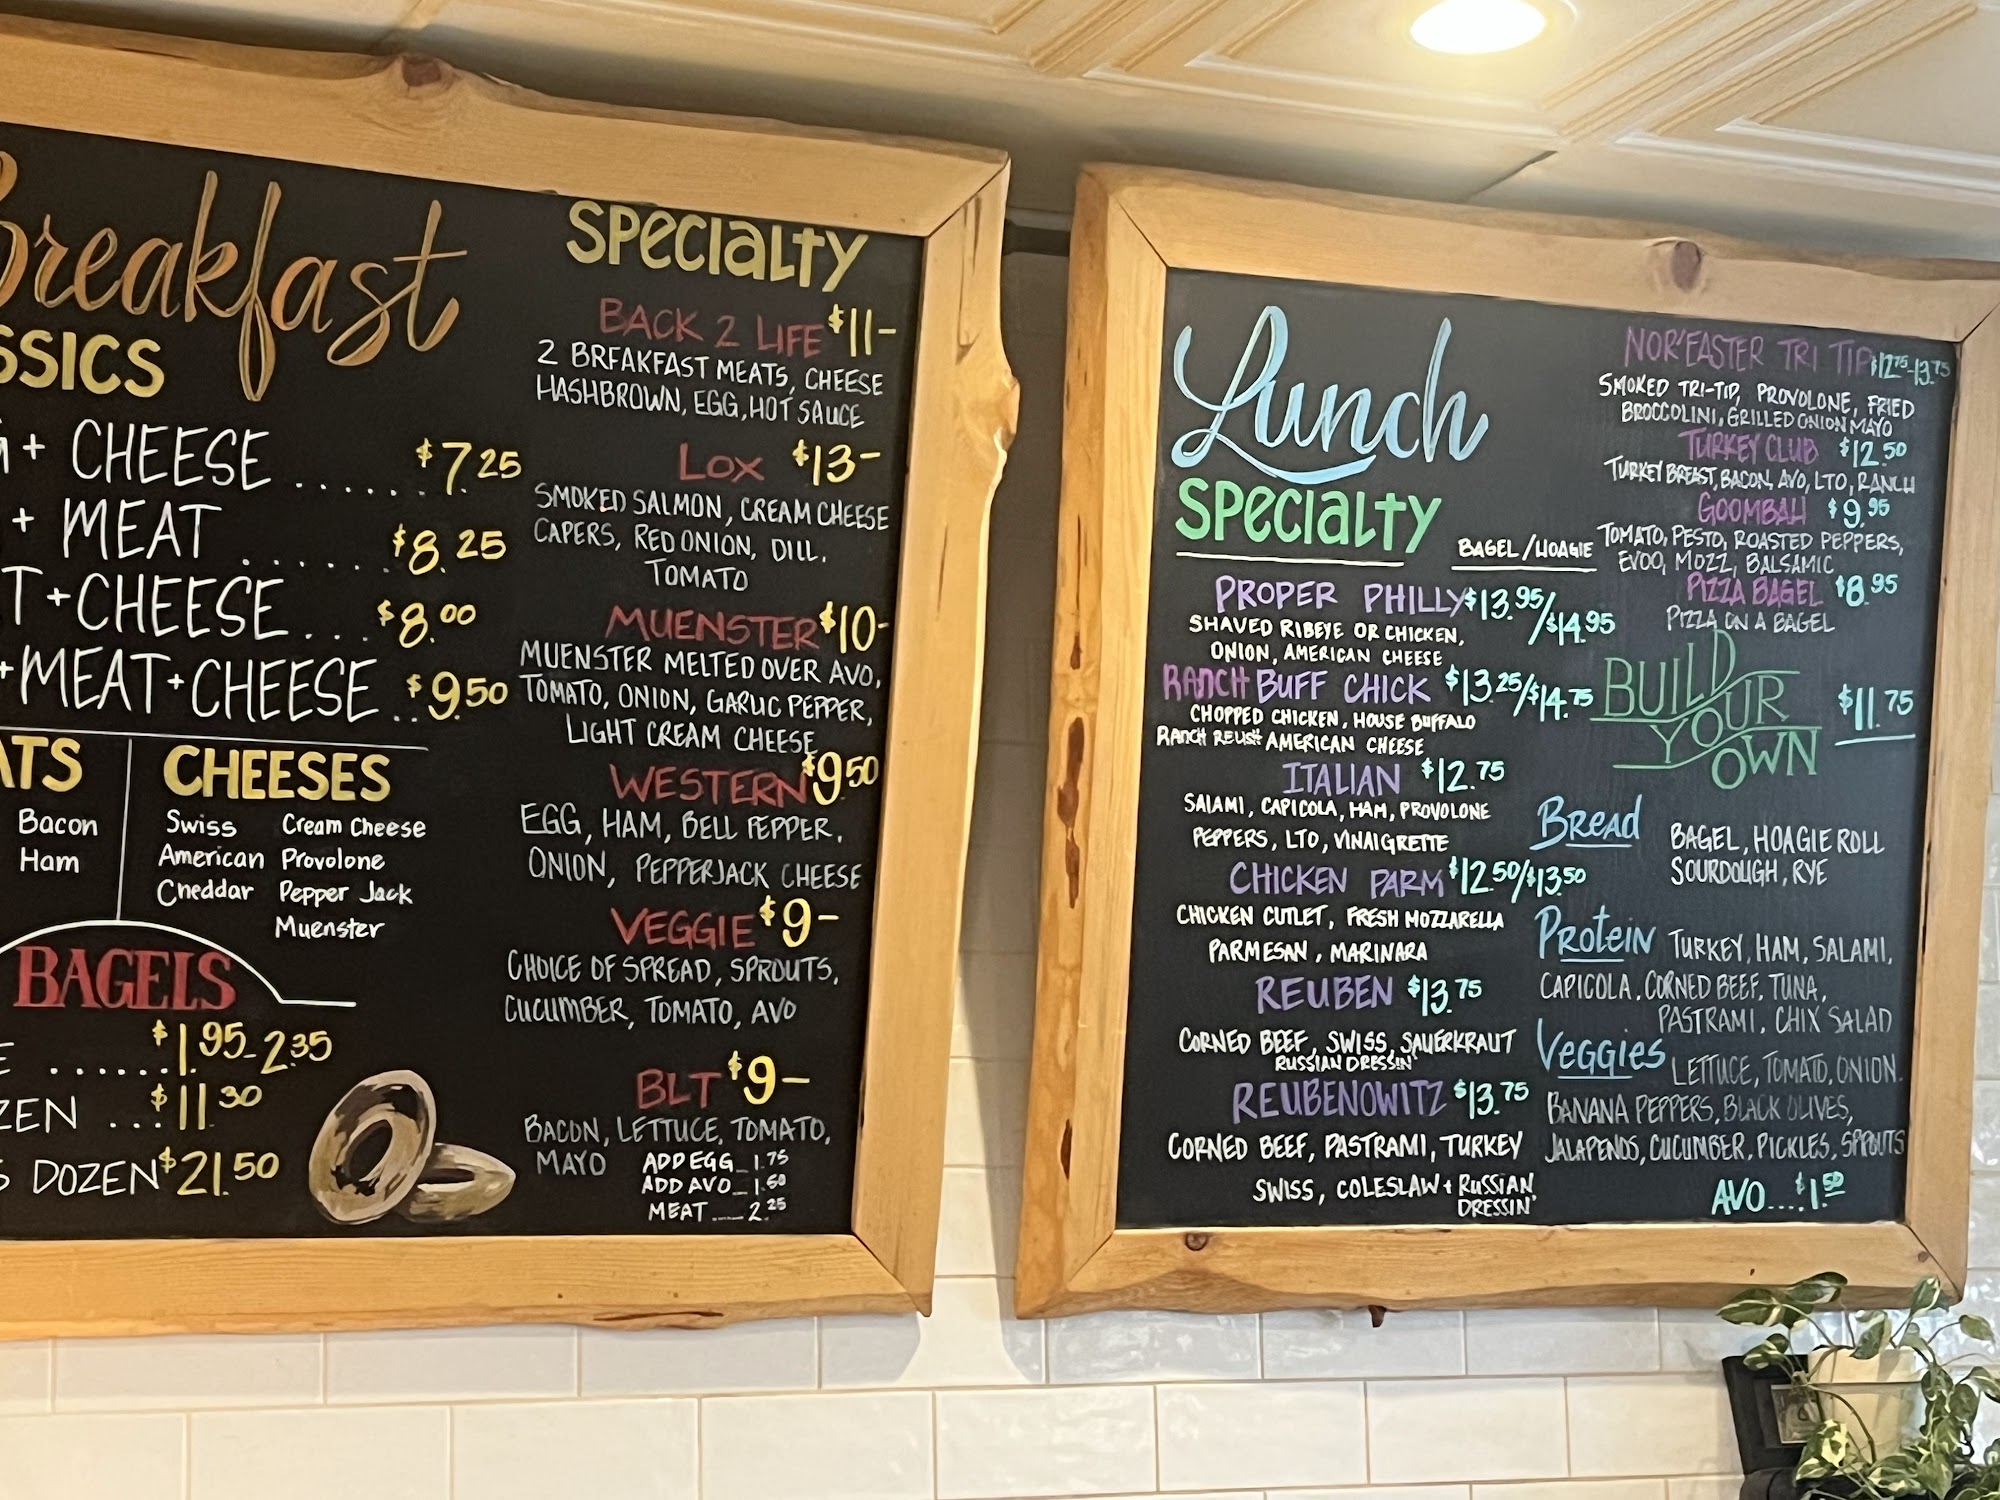 Breakfast
SSICS
+ CHEESE ...... $7.25
+ MEAT ....... $8.25
T + CHEESE... $8.00
+MEAT+CHEESE.. $9.50
ATS
Bacon
Ham
CHEESES
Swiss Cream Cheese
American Provolone
Cheddar Pepper Jack
Muenster
BAGELS
E ...... $1.95-2.35
ZEN ... $11.30
S DOZEN $21.50
SPECIALTY
BACK 2 LIFE $11-
2 BREAKFAST MEATS, CHEESE
HASHBROWN, EGG, HOT SAUCE
LOX $13-
SMOKED SALMON, CREAM CHEESE
CAPERS, RED ONION, DILL.
TOMATO
MUENSTER $10-
MUENSTER MELTED OVER AVO,
TOMATO, ONION, GARLIC PEPPER,
LIGHT CREAM CHEESE
WESTERN $9.50
EGG, HAM, BELL PEPPER,
ONION, PEPPERJACK CHEESE
VEGGIE $9-
CHOICE OF SPREAD, SPROUTS,
CUCUMBER, TOMATO, AVO
BLT $9-
BACON, LETTUCE, TOMATO,
MAYO
ADD EGG_1.75
ADD AVO_1.50
MEAT__2.25
Lunch
SPECIALTY
BAGEL/HOAGIE
PROPER PHILLY $13.95/$14.95
SHAVED RIBEYE OR CHICKEN,
ONION, AMERICAN CHEESE
RANCH BUFF CHICK $13.25/$14.75
CHOPPED CHICKEN, HOUSE BUFFALO
RANCH RELISH AMERICAN CHEESE
ITALIAN $12.75
SALAMI, CAPICOLA, HAM, PROVOLONE
PEPPERS, LTO, VINAIGRETTE
CHICKEN PARM $12.50/$13.50
CHICKEN CUTLET, FRESH MOZZARELLA
PARMESAN, MARINARA
REUBEN $13.75
CORNED BEEF, SWISS, SAUERKRAUT
RUSSIAN DRESSIN'
REUBENOWITZ $13.75
CORNED BEEF, PASTRAMI, TURKEY
SWISS, COLESLAW + RUSSIAN
DRESSIN'
NOR'EASTER TRI TIP $12.75-13.75
SMOKED TRI-TIP, PROVOLONE, FRIED
BROCCOLINI, GRILLED ONION MAYO
TURKEY CLUB $12.50
TURKEY BREAST, BACON, AVO, LTO, RANCH
GOOMBAH $9.95
TOMATO, PESTO, ROASTED PEPPERS,
EVOO, MOZZ, BALSAMIC
PIZZA BAGEL $8.95
PIZZA ON A BAGEL
BUILD
YOUR
OWN
$11.75
Bread BAGEL, HOAGIE ROLL
SOURDOUGH, RYE
Protein TURKEY, HAM, SALAMI,
CAPICOLA, CORNED BEEF, TUNA,
PASTRAMI, CHIX SALAD
Veggies LETTUCE, TOMATO, ONION.
BANANA PEPPERS, BLACK OLIVES,
JALAPENOS, CUCUMBER, PICKLES, SPROUTS
AVO....$1.50